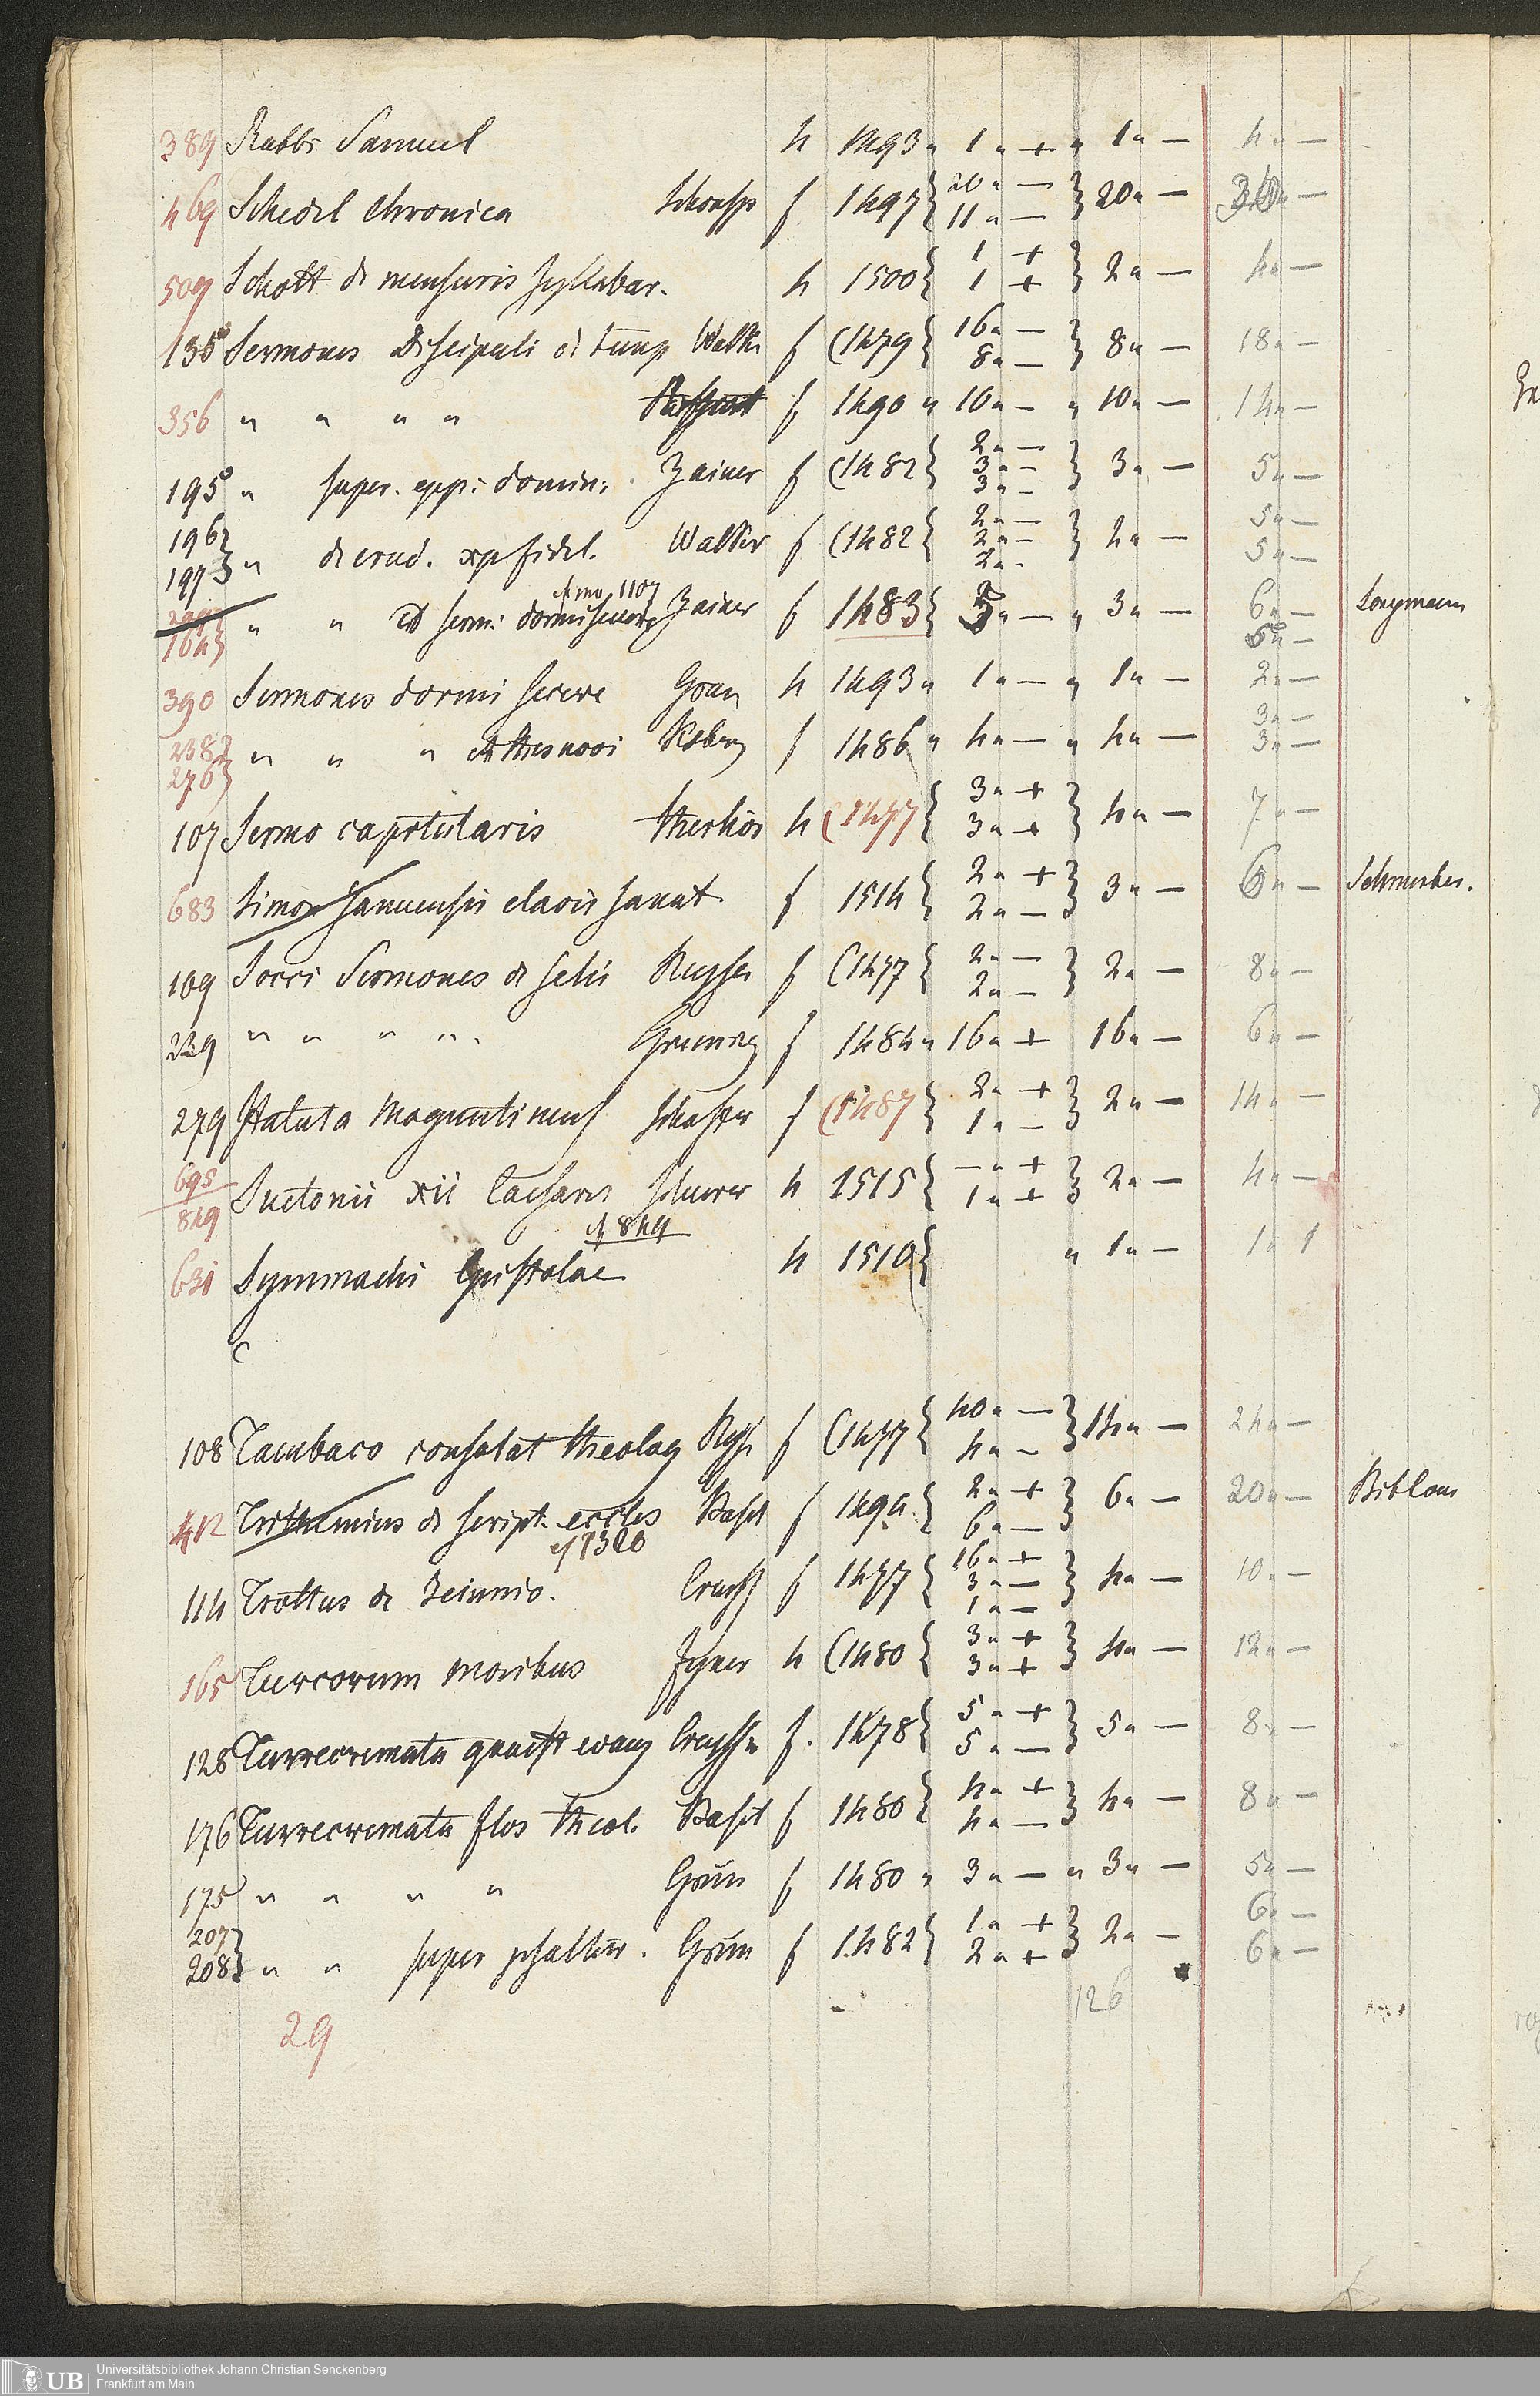 389 Rabbi Samuel 4 1493 „ 1 „ + „ 1 „ — 4 „ —
469 Schedel chronica Schonsp f 1497 { 20 „ — 11 „ — } 20 „ —
509 Schott de mensuris syllabar. 4 1500 { 1 + 1 + } 2 „ — 4 „ —
135 Sermones Discipuli de temp f (1479 { 16 „ — 8 „ — } 8 „ — 18 „ —
356 „ „ „ „ f 1490 „ 10 „ — „ 10 „ — 14 „ —
195 „ super. epp: domin: Zainer f (1482 { 2 „ — 3 „ — 3 „ — } 3 „ — 5 „ —
196 197 } „ de erud. xp fidel. Walker f (1482 { 2 „ — 2 „ — 2 „ - } 2 „ — 5 „ — 5 „ —
164 } „ „ Et serm: dormi secure Zainer f 1483 { 3 „ — „ 3 „ — 6 „ — 5 „ — Longmann
cf no 1107
390 Sermones dormi secure Gran 4 1493 „ 1 „ — „ 1 „ — 2 „ —
238 276 } „ „ „ et thes novi f 1486 „ 4 „ — „ 4 „ — 3 „ — 3 „ —
107 Sermo capitularis therhör 4 (1477 { 3 „ + 3 „ + } 4 „ — 7 „ —
683 Simon Januensis clavis sanat f 1514 { 2 „ + 2 „ — } 3 „ — 6 „ —
109 Socci Sermones de setis Ruysser f (1477 { 2 „ — 2 „ — } 2 „ — 8 „ —
239 „ „ „ „ f 1484 „ 16 „ + 16 „ — 6 „ —
279 Statuta Moguntinens Schoeffer f (1487 { 2 „ + 1 „ — } 2 „ — 14 „ —
695 849 Suetonii xii Caesares Schurer 4 1515 { — „ + 1 „ + } 2 „ — 4 „ —
cf 849
631 Symmachi Epistolae 4 1510 { „ 1 „ — 1 „ 1
108 Tambaco consolat theolog f (1477 { 40 „ — 4 „ — } 14 „ — 24 „ —
412 Trithemius de script. eccles Basel f 1494 { 2 „ + 6 „ — } 6 „ — 20 „ —
cf 1320
114 Trottus de Jeiunio. f 1477 { 16 „ + 3 „ — 1 „ — } 4 „ — 10 „ —
165 Turcorum Moribus Fyner 4 (1480 { 3 „ + 3 „ + } 4 „ — 12 „ —
128 Turrecremata quaest evang Creussn f. 1478 { 5 „ + 5 „ — } 5 „ — 8 „ —
176 Turrecremata flos theol. Basel f 1480 { 4 „ + 4 „ — } 4 „ — 8 „ —
175 „ „ „ „ Grün f 1480 „ 3 „ — „ 3 „ — 5 „ —
207 208 } „ „ super psalter. Grün f 1482 { 1 „ + 2 „ + } 2 „ — 6 „ — 6 „ —
126
29
UB Universitätsbibliothek Johann Christian Senckenberg
Frankfurt am Main